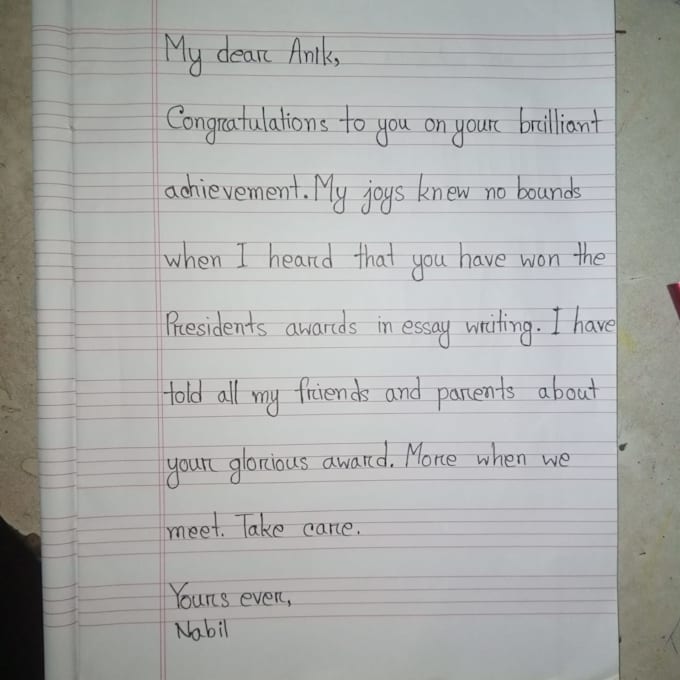 My dear Anik,
Congratulations to you on your brilliant
achievement. My joys knew no bounds
when I heard that you have won the
Presidents awards in essay writing. I have
told all my friends and parents about
your glorious award. More when we
meet. Take care.
Yours ever,
Nabil